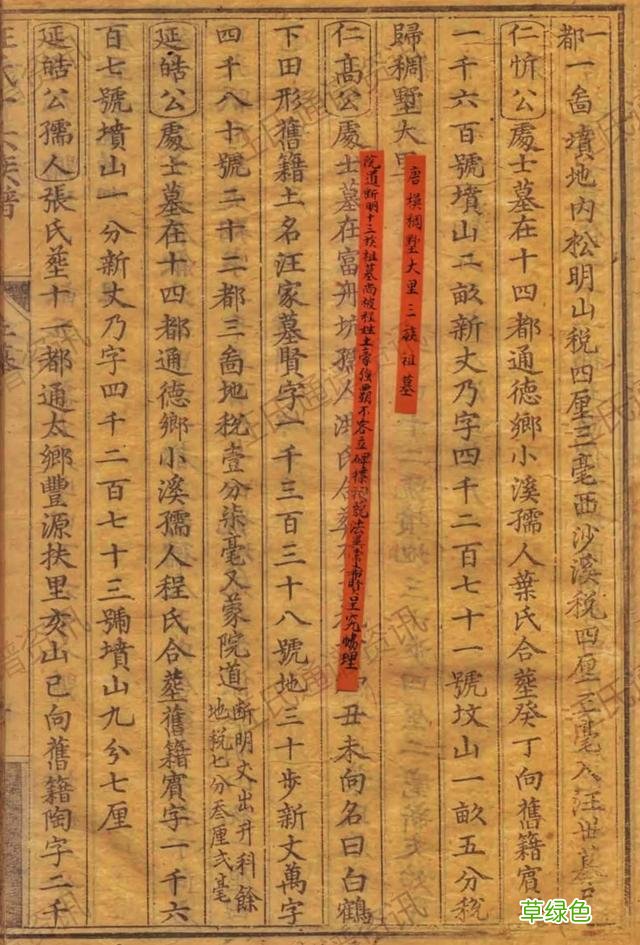 都一啚墳地內松明山税四厘三毫西沙溪税四厘三毫入汪世墓
仁忻公處士墓在十四都通德鄉小溪孺人葉氏合塟癸丁向舊籍賓
一千六百號墳山二畝新丈乃字四千二百七十一號坟山一畝五分税
歸稠墅大里
唐模稠墅大里三族祖墓
仁高公處士墓在富舟坑孺人洪氏合塟丑未向名曰白鶴
院道断明十三族祖墓尚被程姓土豪強霸不容立碑標祀呈究惕理
下田形舊籍土名汪家墓賢字一千三百三十八號地三十步新丈萬字
四千八十號二十二都三啚地税壹分柒毫又蒙院道断明丈出升科餘地税七分叁厘弍毫
延皓公處士墓在十四都通德鄉小溪孺人程氏合塟舊籍賓字一千六
百七號墳山一分新丈乃字四千二百七十三號墳山九分七厘
延皓公孺人張氏塟十一都通太鄉豐源扶里亥山巳向舊籍陶字二千
草绿色